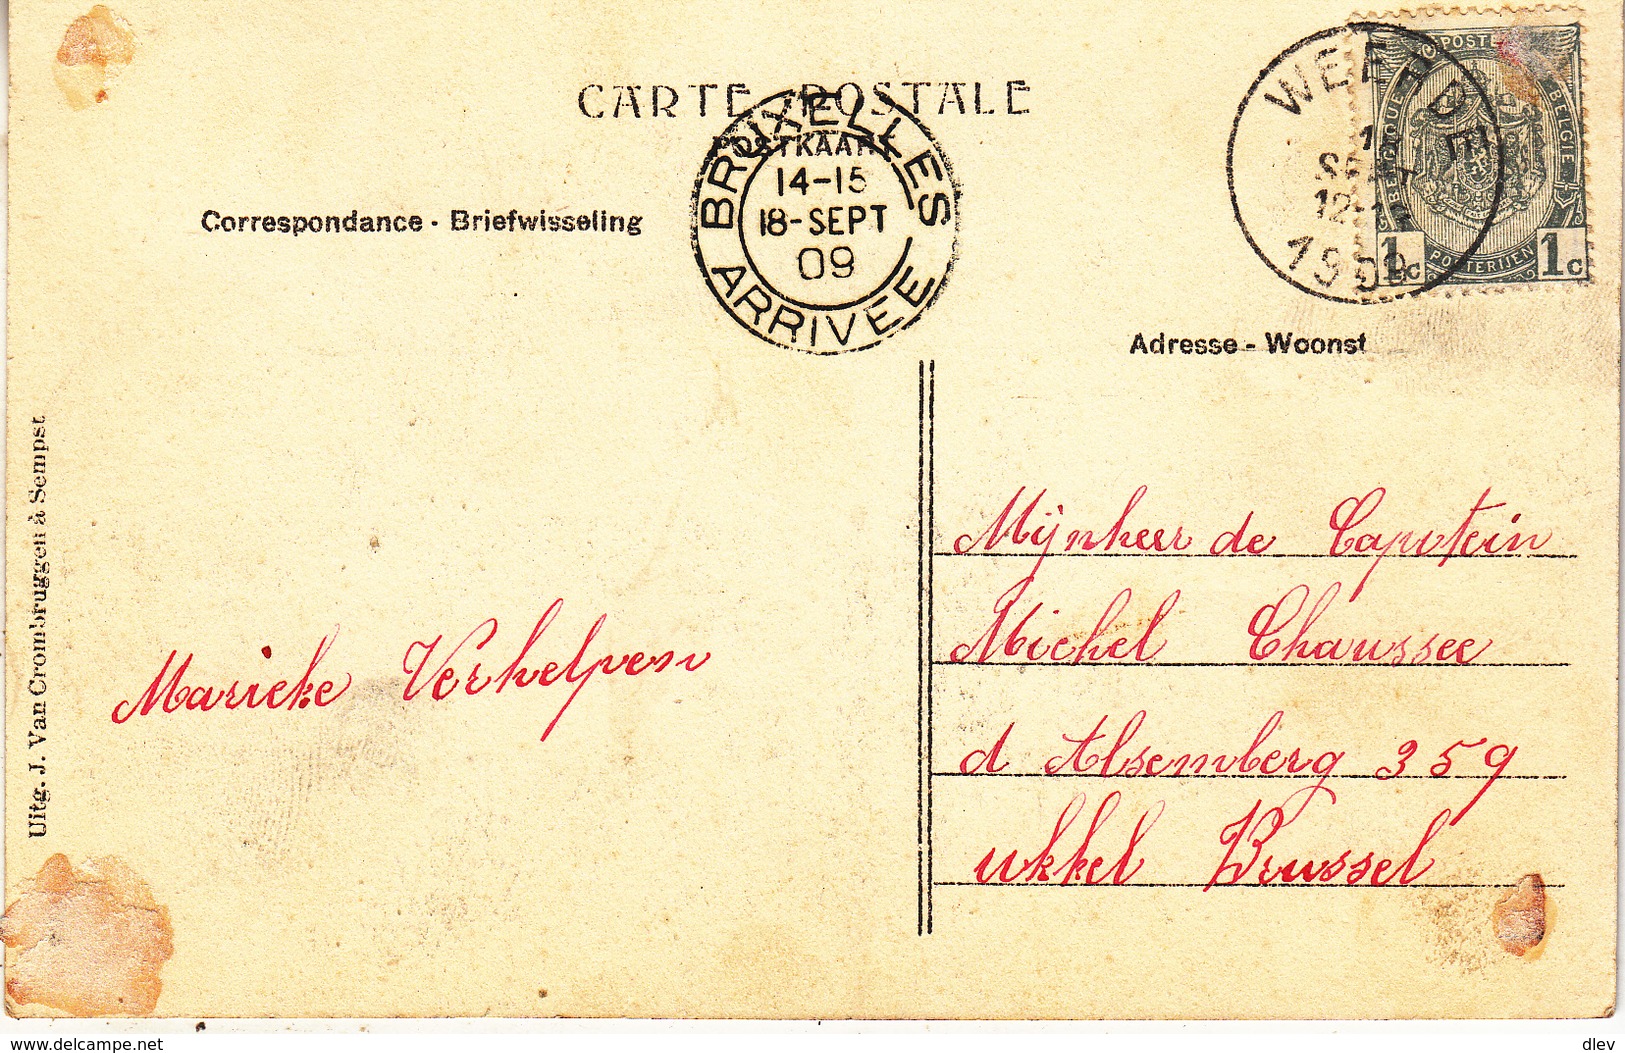 CARTE POSTALE
POSTKAART
BRUXELLES
14-15
18-SEPT
09
ARRIVEE
WEERDE
12-13
1909
POSTES
BELGIQUE
BELGIE
POSTERIJEN
1c
1c
Correspondance - Briefwisseling
Adresse - Woonst
Uitg. J. Van Crombruggen à Sempst
Marieke Verhelpen
Mijnheer de Capstein
Michel Chaussee
d Alsemberg 359
ukkel Brussel
delcampe.net
dlev